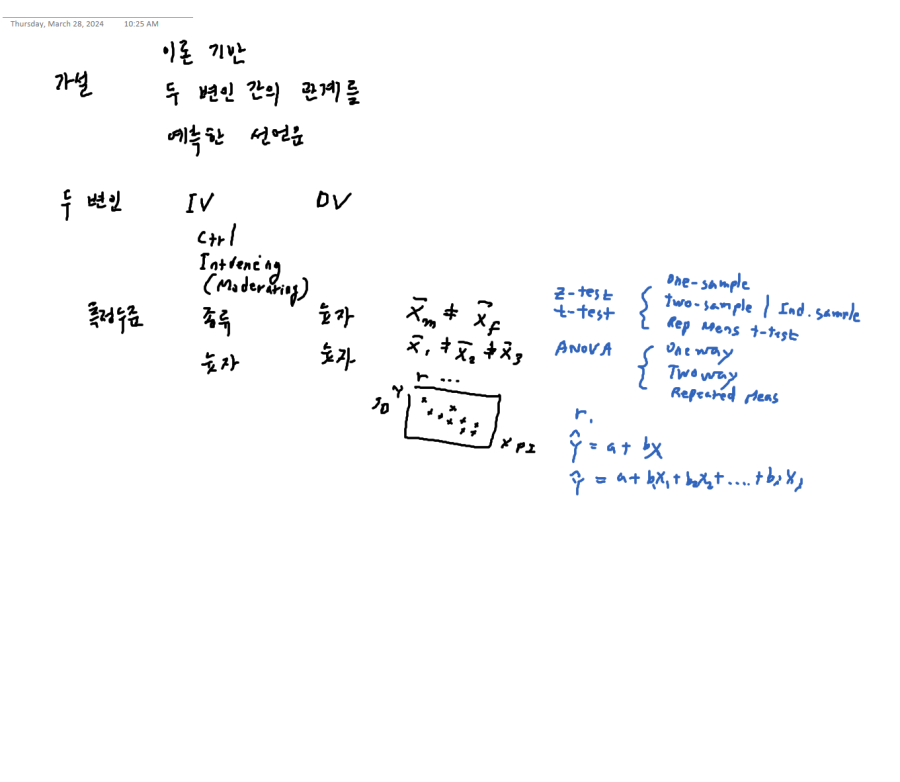 Thursday, March 28, 2024 10:25 AM
이론 기반
가설 두 변인 간의 관계를
예측한 선언문
두 변인 IV DV
Ctrl
Intvencing
(Moderating)
측정수준 종류 숫자 X̄m ≠ X̄f
숫자 숫자 X̄1 ≠ X̄2 ≠ X̄3
r ...
Y
X
z-test
t-test
One-sample
Two-sample / Ind. sample
Rep Meas t-test
ANOVA
One way
Two way
Repeated Meas
r.
Ŷ = a + bX
Ŷ = a + b1X1 + b2X2 + .... +